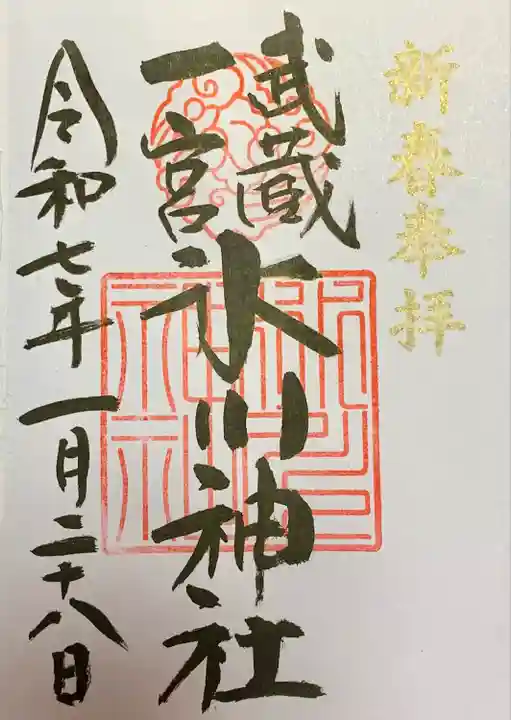 新春奉拝
武蔵
一宮
氷川神社
令和七年一月二十八日
氷川
神社